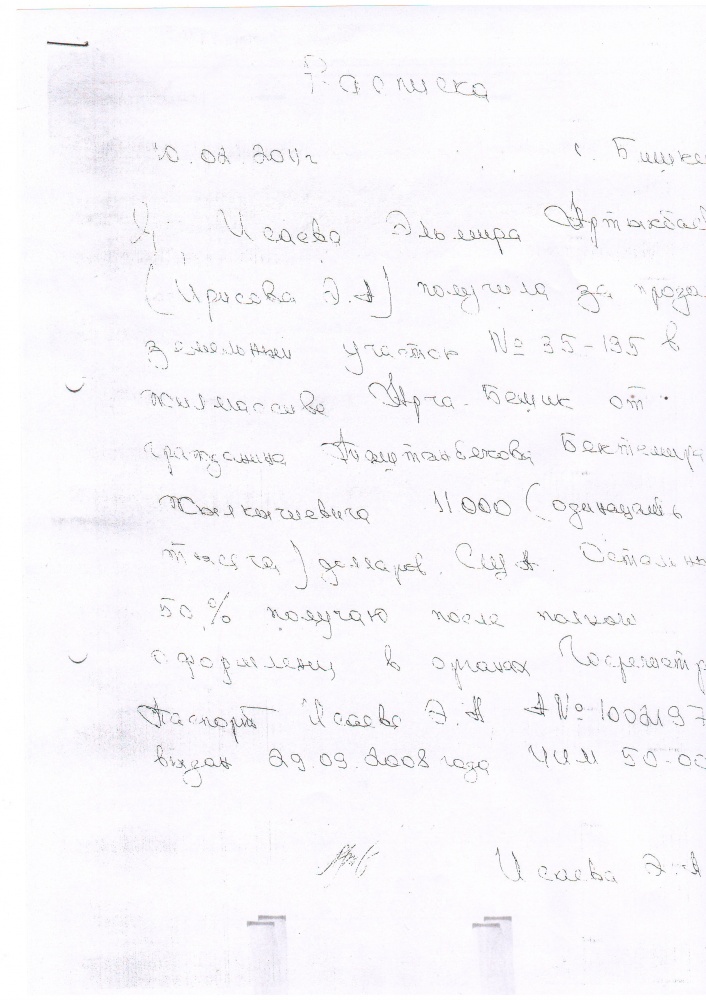 Расписка
10.02.2011г с. Бишке
Я Исаева Эльмира Артыкбае
(Ирисова Э.А) получила за прода
земельный участок № 35-195 в
жилмассиве Арча-Бешик от
гражданина Бектемира
11000 (одинацать
тысяча) долларов США. Остальны
50% получаю после полного
оформлений в органах Госрегистр
Паспорт Исаева Э.А А№1002197
выдан 29.09.2008 года ЧИМ 50-00
Исаева Э.А